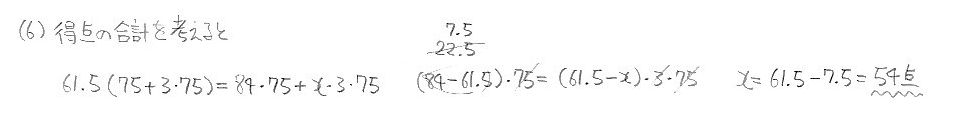 (6) 得点の合計を考えると
7.5
22.5
61.5(75+3・75)=84・75+x・3・75 (84-61.5)・75=(61.5-x)・3・75 x=61.5-7.5=54点